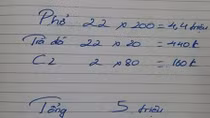 Phở 22 x 200 = 4,4 triệu
Trà đá 22 x 20 = 440k
C2 2 x 80 = 160k
Tổng 5 triệu